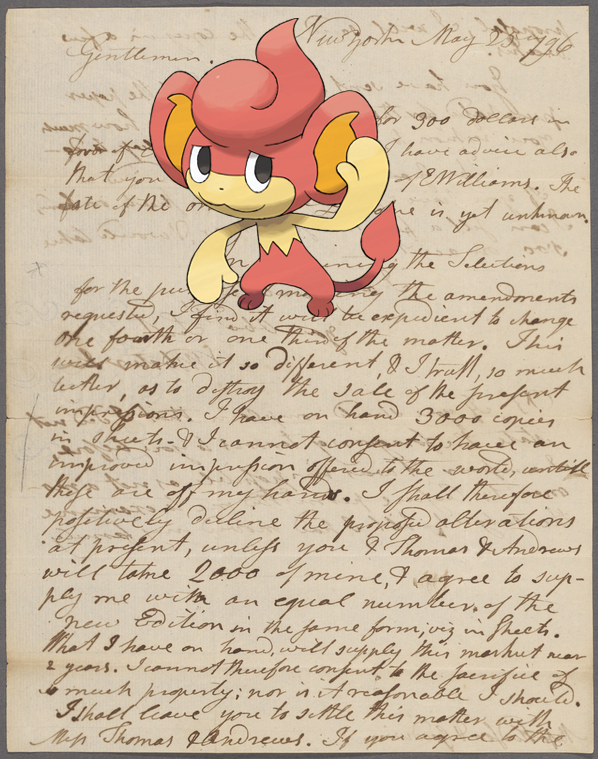 New york May 25 1796
Gentlemen.
for 300 dollars in
I have advice also
that you J E Williams. The
fate of the one is yet unknown.
the Selections
for the the amendments
requested, I find it will be expedient to change
one fourth or one third of the matter. This
will make it so different, & I trust, so much
better, as to destroy the sale of the present
impressions. I have on hand 3000 copies
in sheets & I cannot consent to have an
improved impression offered to the world, untill
these are off my hands. I shall therefore
positively decline the proposed alterations
at present, unless you & Thomas & Andrews
will take 2000 of mine, & agree to sup-
ply me with an equal number of the
new Edition in the same form, viz in Sheets.
What I have on hand, will supply this market near
2 years. I cannot therefore consent to the sacrifice of
so much property; nor is it reasonable I should.
I shall leave you to settle this matter with
Messrs Thomas & Andrews. If you agree to the